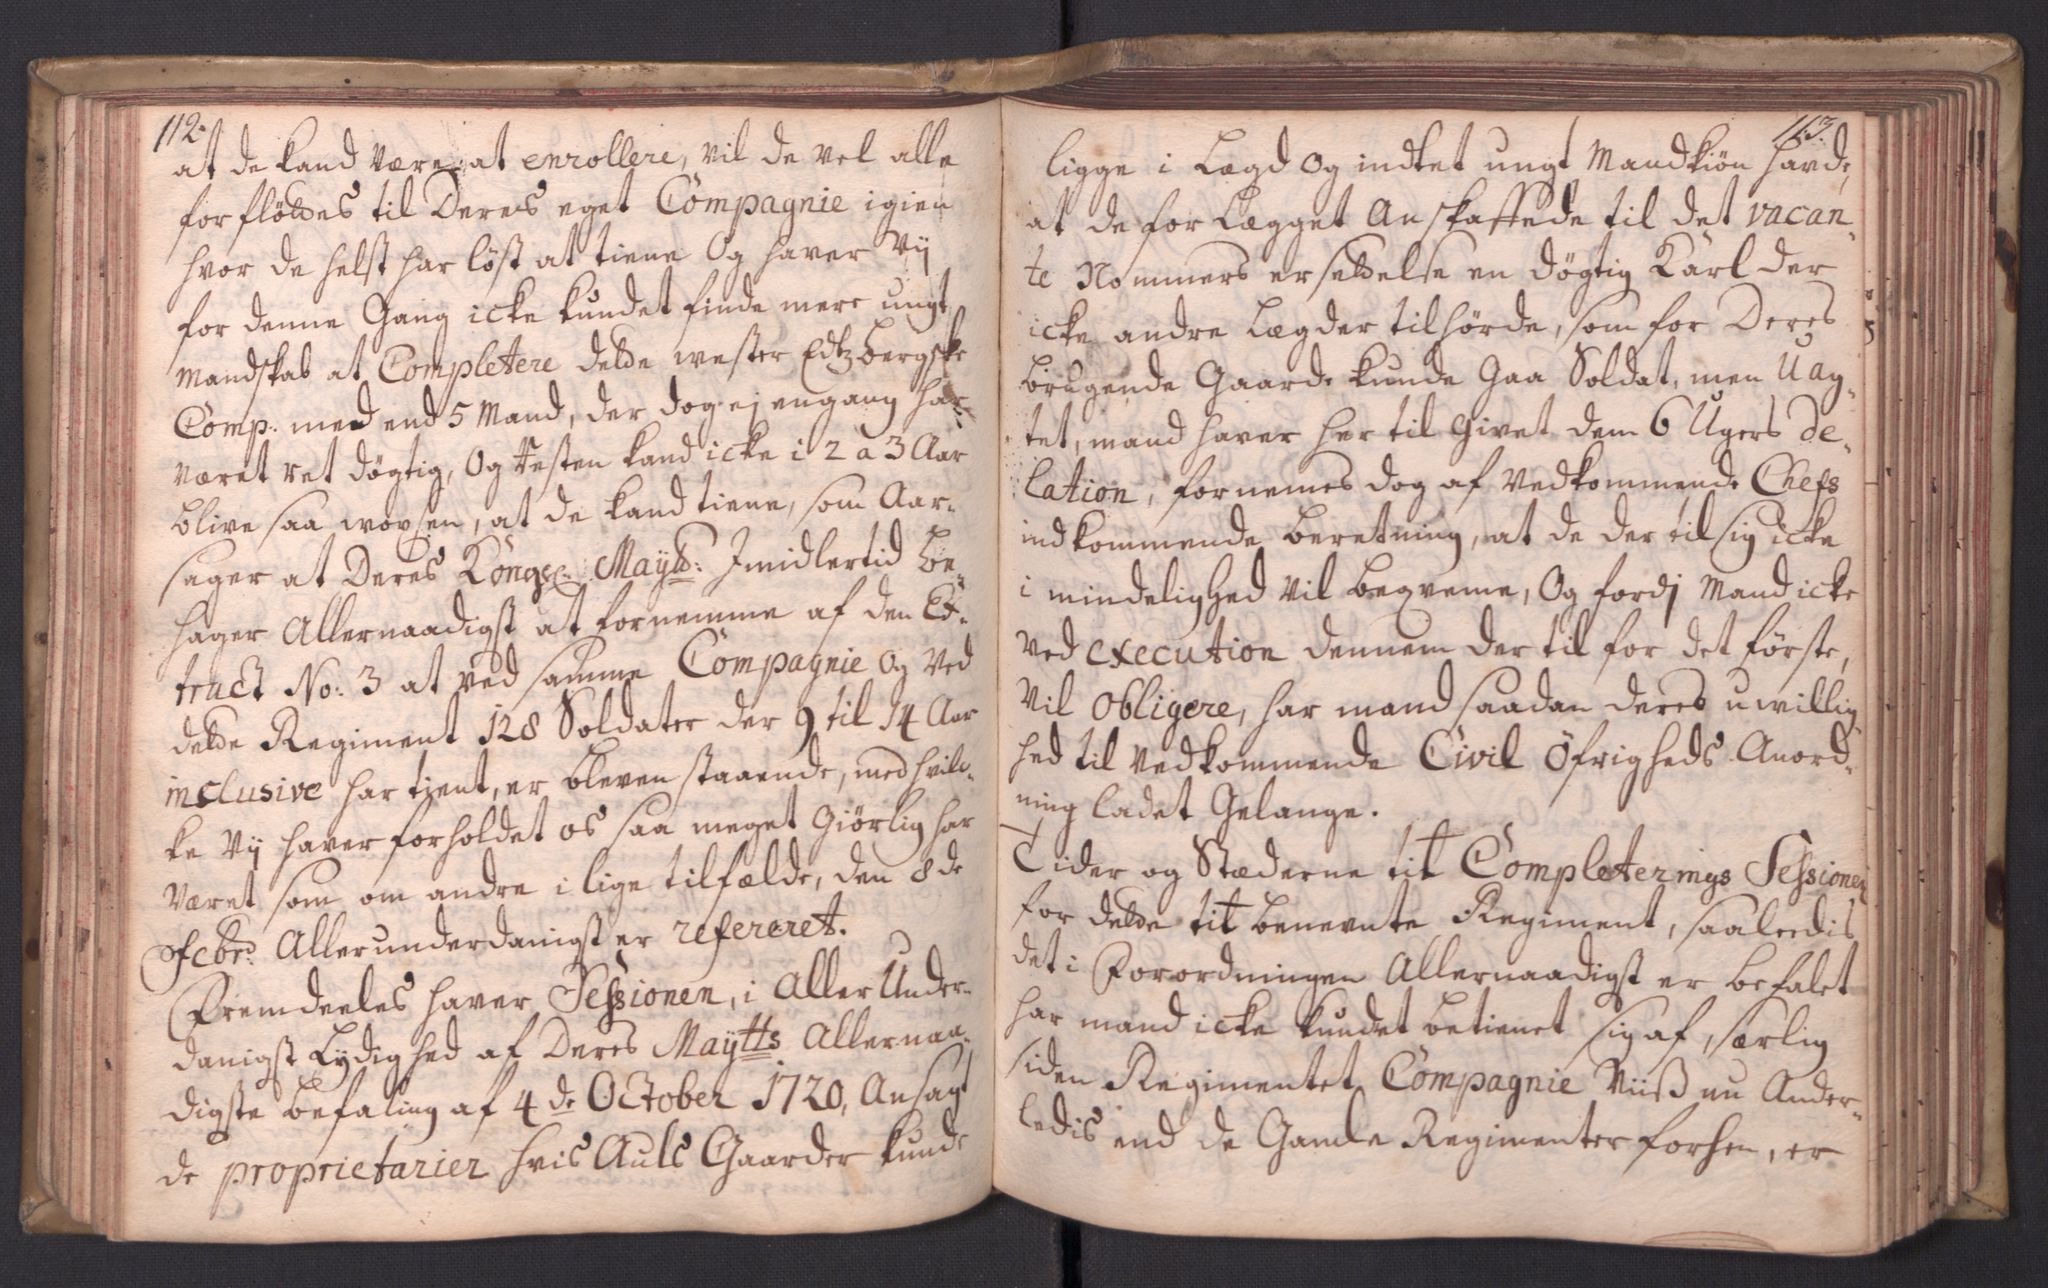 112.
at de kand være at enrollere, vil de vel alle
forfløttes til Deres eget Compagnie igien
hvor de helst har løst at tiene Og haver Vij
for denne Gang icke kundet finde mere ungt
Mandskab at Completere dette wester
Comp: med end 5 Mand, der dog ej engang har
været ret døgtig, Og Resten kand icke i 2 a 3 Aar
blive saa woxsen, at de kand tiene, som Aar-
sager at Deres Kongel: Mayts: Imidlertid be-
hager Allernaadigst at fornemme af den Ex-
tract No: 3 at ved samme Compagnie og ved
dette Regiment 128 Soldater der 9 til 14 Aar
inclusive har tient, er bleven staaende, med hvil-
ke Vij haver forholdet os saa meget Giørlig har
Været som om andre i lige tilfælde, den 8de
Febr: Allerunderdanigst er refereret.
Fremdeeles haver Sessionen, i AllerUnder-
danigst Lydighed af Deres Maytts Allernaa-
digste befaling af 4de October 1720, Ansagt
de proprietarier hvis Auls Gaarder kunde
113.
ligge i Lægd Og indtet ungt Mandkiøn havde,
at de for Lægget Anskaffede til det vacan-
te Nommers ersettelse en døgtig Karl der
icke andre Lægder tilhørde, som for Deres
brugende Gaarde kunde Gaa Soldat, men Uag-
tet, mand haver her til Givet dem 6 Ugers de-
lation, fornemes dog af vedkommende Chefs
indkommende beretning, at de der til sig icke
i mindelighed vil beqveme, Og fordj Mand icke
ved execution dennem der til for det første,
vil obligere, har mand saadan deres uwillig
hed til vedkommende Civil Øfrigheds Anord-
ning ladet Gelange.
Tider og Stæderne til Completerings Sessionen
for dette tit benevnte Regiment, saaleedis
det i Forordningen Allernaadigst er befalet
har mand icke kundet betienet sig af, særlig
siden Regimentet Compagnie Viiß nu Ander-
ledis end de Gamle Regimenter forhen, er